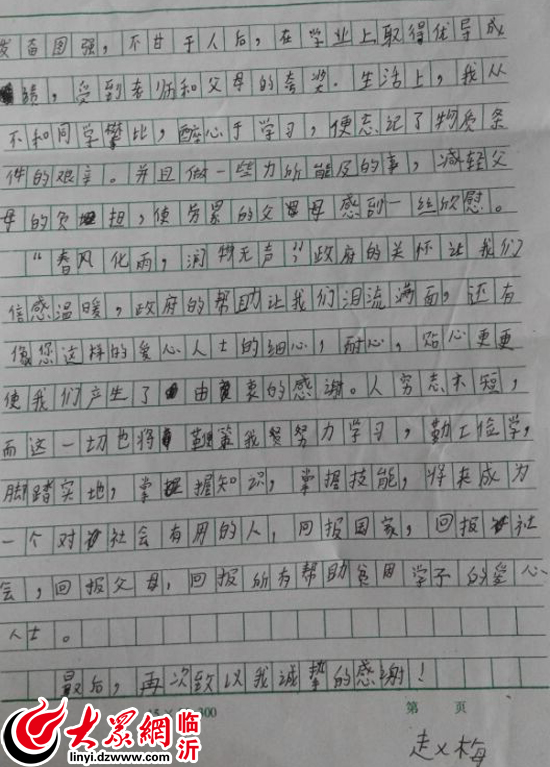 发奋图强，不甘于人后，在学业上取得优异成
绩，受到老师和父母的夸奖．生活上，我从
不和同学攀比，醉心于学习，便忘记了物质条
件的艰辛。并且做一些力所能及的事，减轻父
母的负担，使劳累的父母感到一丝欣慰。
“春风化雨，润物无声”，政府的关怀让我们
倍感温暖，政府的帮助让我们泪流满面，还有
像您这样的爱心人士的细心，耐心，贴心更更
使我们产生了由衷的感谢。人穷志不短，
而这一切也将鞭策我努力学习，勤工俭学，
脚踏实地，掌握知识，掌握技能，将来成为
一个对社会有用的人，回报国家，回报社
会，回报父母，回报所有帮助贫困学子的爱心
人士。
最后，再次致以我诚挚的感谢！
300
第 页
大众网 临沂
linyi.dzwww.com
梅